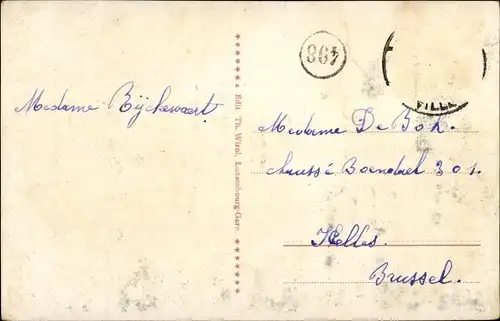 Madame Bÿckewaert
★★★★★★★ Edit. Th. Wirol, Luxembourg-Gare. ★★★★★★★
498
VILLE
Madame De Bok.
chaussé Boendael 301.
Ixelles.
Brussel.